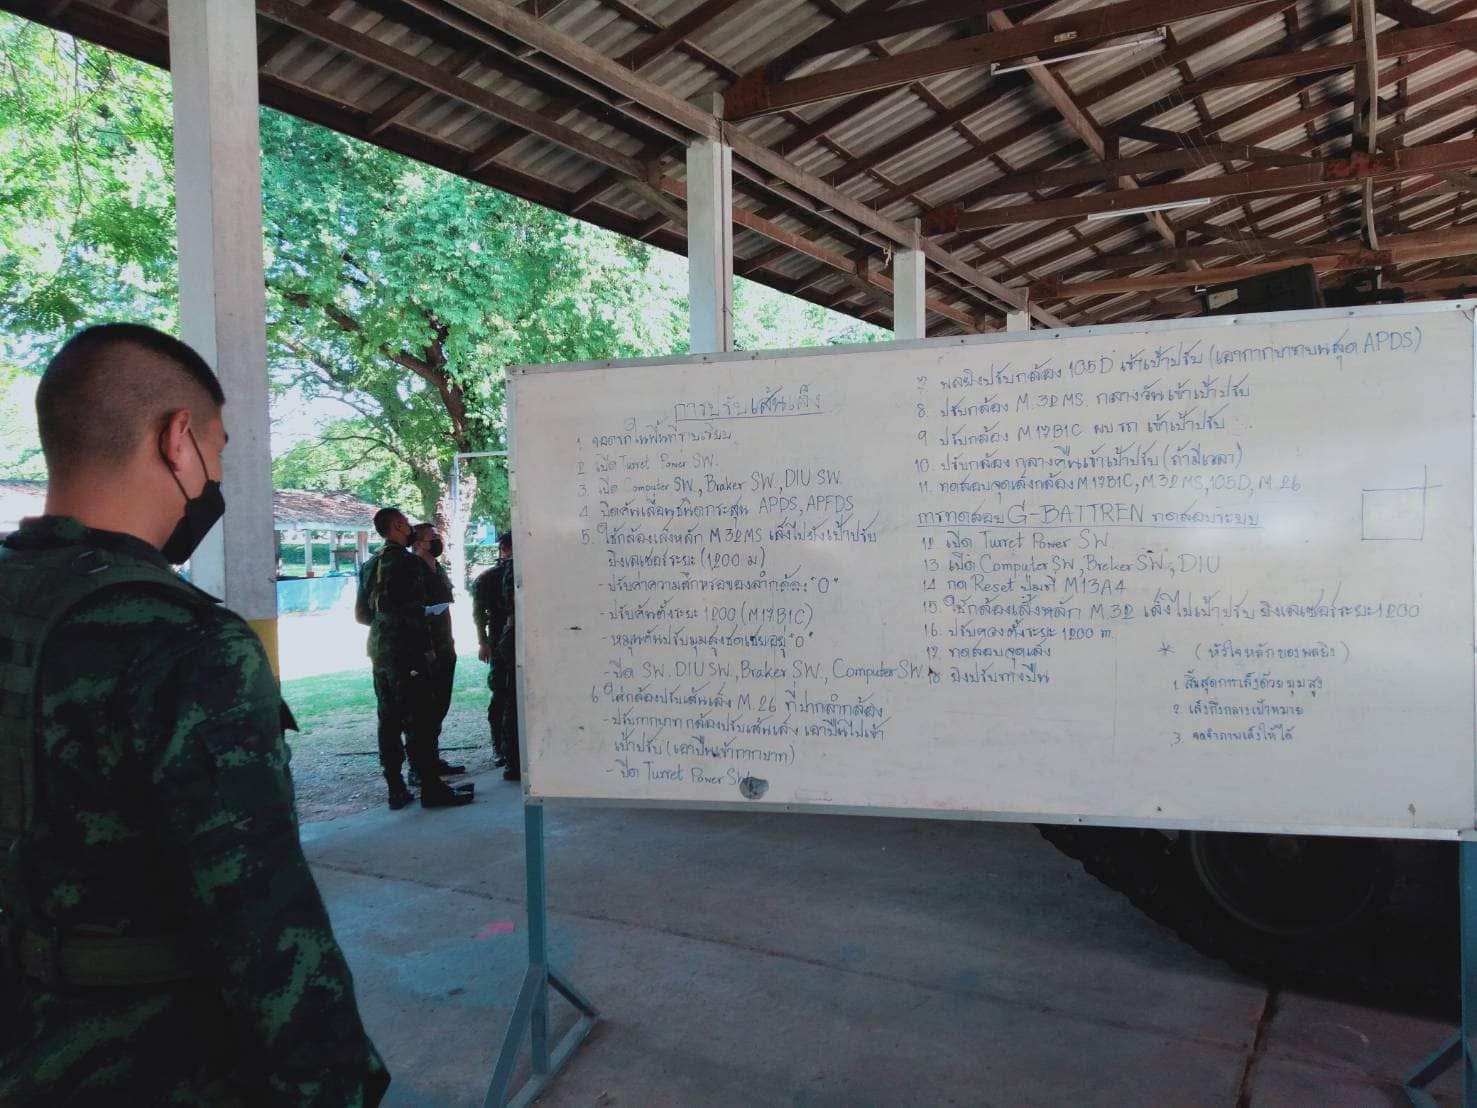 การปรับเส้นเล็ง
1 จอดรถในพื้นที่ราบเรียบ
2 เปิด Turret Power SW.
3. เปิด Computer SW, Braker SW, DIU SW.
4 ปิดคันเลื่อนชนิดกระสุน APDS, APFDS
5. ใช้กล้องเล็งหลัก M 32 MS เล็งไปยังเป้าปรับ
ยิงเลเซอร์ระยะ (1200 ม)
- ปรับค่าความสึกหรอของลำกล้อง "0"
- ปรับคันตั้งระยะ 1200 (M17B1C)
- หมุนคันปรับมุมสูงชดเชยอยู่ "0"
- ปิด SW. DIU SW., Braker SW., Computer SW.
6 ใส่กล้องปรับเส้นเล็ง M.26 ที่ปากลำกล้อง
- ปรับกากบาทกล้องปรับเส้นเล็ง เอาปืนไปเข้า
เป้าปรับ (เอาปืนเข้ากากบาท)
- ปิด Turret Power SW
7 พลยิงปรับกล้อง 105D เข้าเป้าปรับ (เอากากบาทบนสุด APDS)
8. ปรับกล้อง M.32 MS. กลางวันเข้าเป้าปรับ
9 ปรับกล้อง M17B1C ผบ.รถ เข้าเป้าปรับ
10. ปรับกล้อง กลางคืนเข้าเป้าปรับ (ถ้ามีเวลา)
11. ทดสอบจุดเล็งกล้อง M17B1C, M32MS, 105D, M.26
การทดสอบ G-BATTREN ทดสอบระบบ
12 เปิด Turret Power SW.
13. เปิด Computer SW, Breker SW., DIU
14 กด Reset ปุ่มที่ M13A4
15. ใช้กล้องเล็งหลัก M.32 เล็งไปเป้าปรับ ยิงเลเซอร์ระยะ 1200
16. ปรับควงตั้งระยะ 1200 m.
17. ทดสอบจุดเล็ง
18 ยิงปรับทางปืน
* (หัวใจหลักของพลยิง)
1. สิ้นสุดการเล็งด้วยมุมสูง
2 เล็งกึ่งกลางเป้าหมาย
3. จดจำภาพเล็งให้ได้